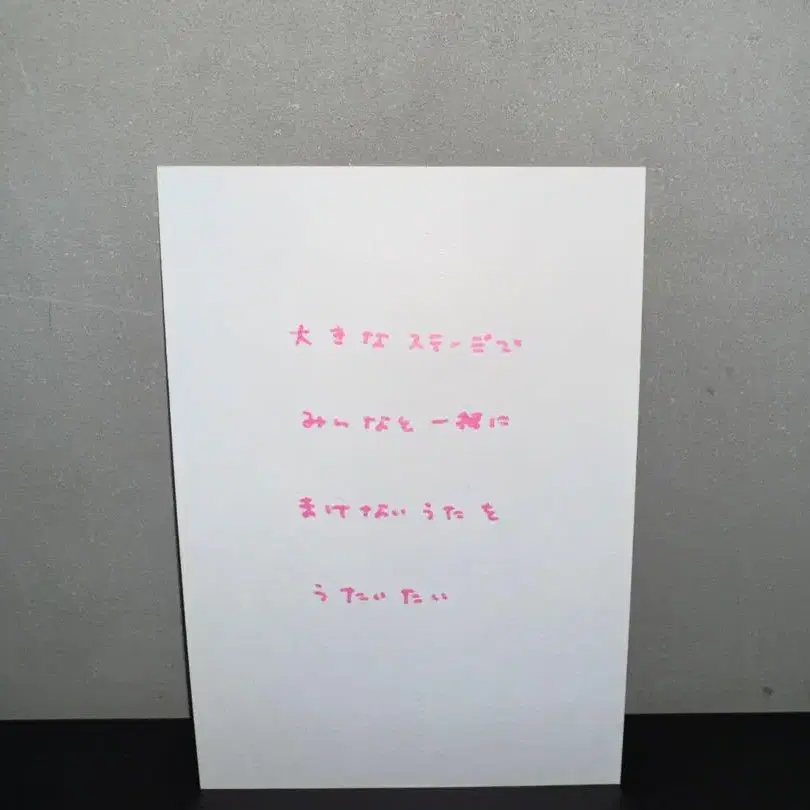 大きなステージで
みんなと一緒に
まけないうたを
うたいたい